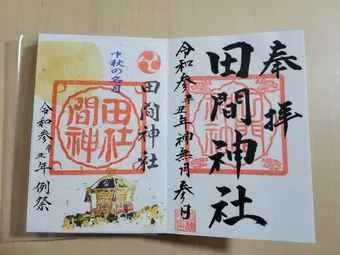 奉拝
田間神社
令和参辛丑年神無月参日
田間神社
田間神社
中秋の名月
田間神社
令和参辛丑年 例祭